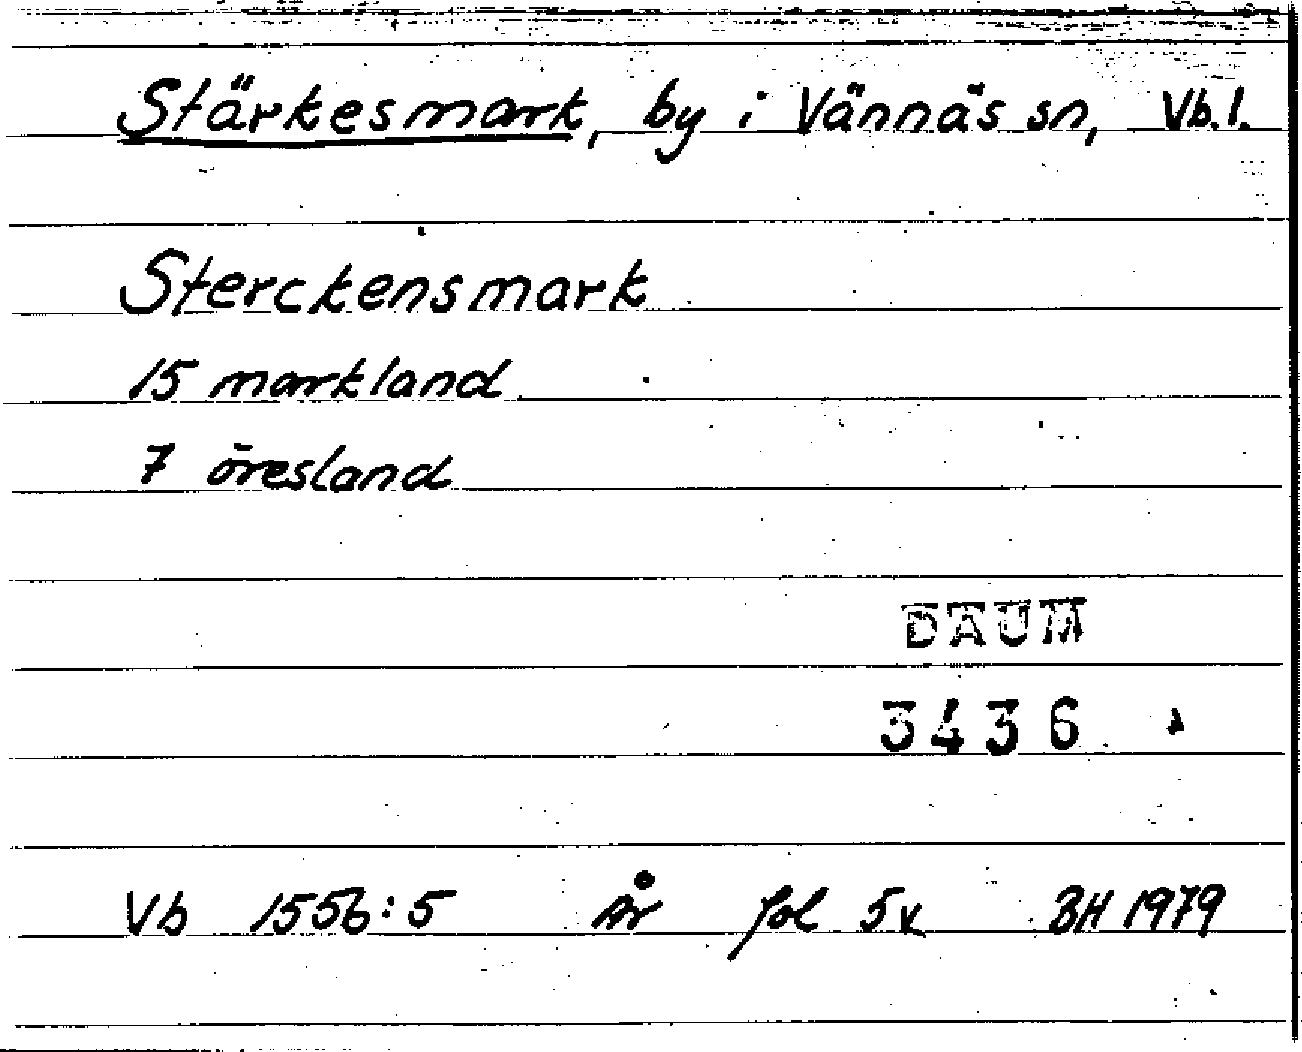 Stärkesmark, by i Vännäs sn, Vb.l.
Sterckensmark
15 markland
7 öresland
DAUM
3436
Vb 1556:5 År fol 5v BH 1979